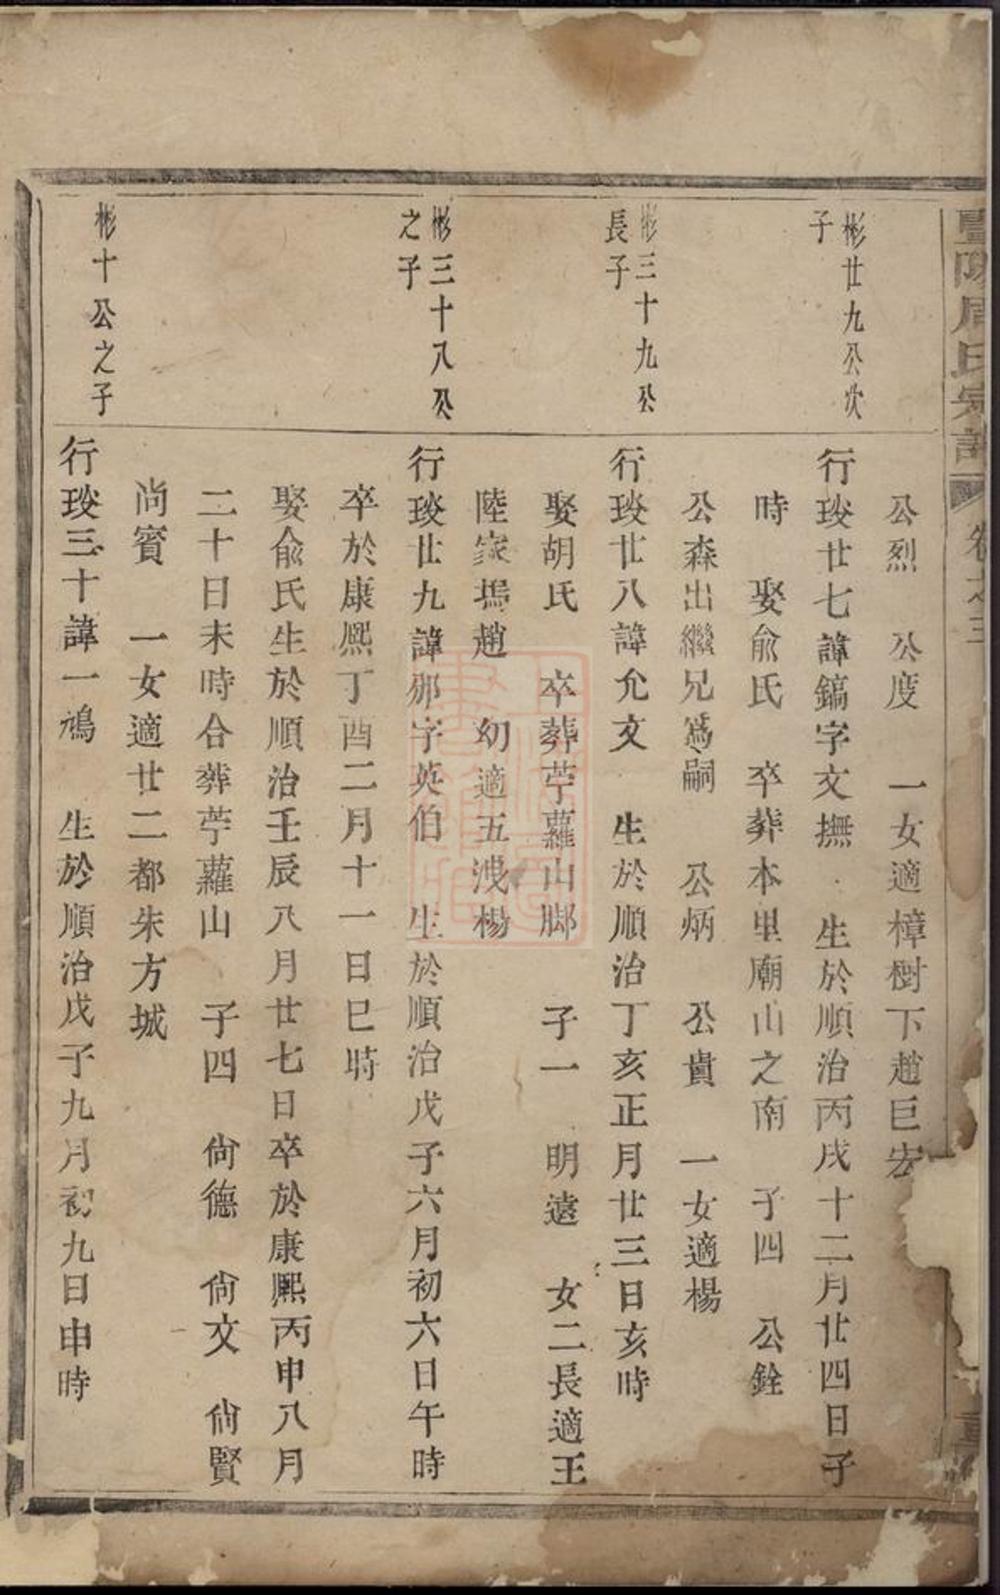 暨陽周氏宗譜
卷之三
公烈 公度 一女適樟樹下趙巨宏
彬廿九公次
子
行琰廿七諱鎬字文撫 生於順治丙戌十二月廿四日子
時 娶俞氏 卒葬本里廟山之南 子四 公銓
公森出繼兄爲嗣 公炳 公貴 一女適楊
彬三十九公
長子
行琰廿八諱允文 生於順治丁亥正月廿三日亥時
娶胡氏 卒葬苧蘿山脚 子一 明遠 女二長適王
陸家塢趙 幼適五洩楊
彬三十八公
之子
行琰廿九諱郉字英伯 生於順治戊子六月初六日午時
卒於康熙丁酉二月十一日巳時
娶俞氏生於順治壬辰八月廿七日卒於康熙丙申八月
二十日未時合葬苧蘿山 子四 尙德 尙文 尙賢
尙賓 一女適廿二都朱方城
彬十公之子
行琰三十諱一鳵 生於順治戊子九月初九日申時